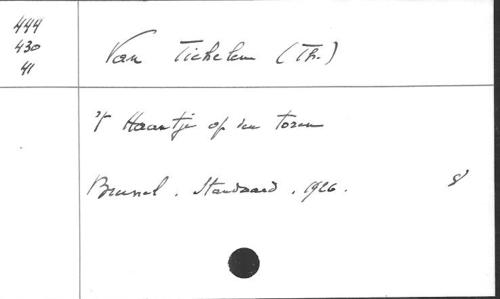 444
430
41
Van Tichelen (Th.)
't Haantje op den toren
Brussel. Standaard. 1926. 8°